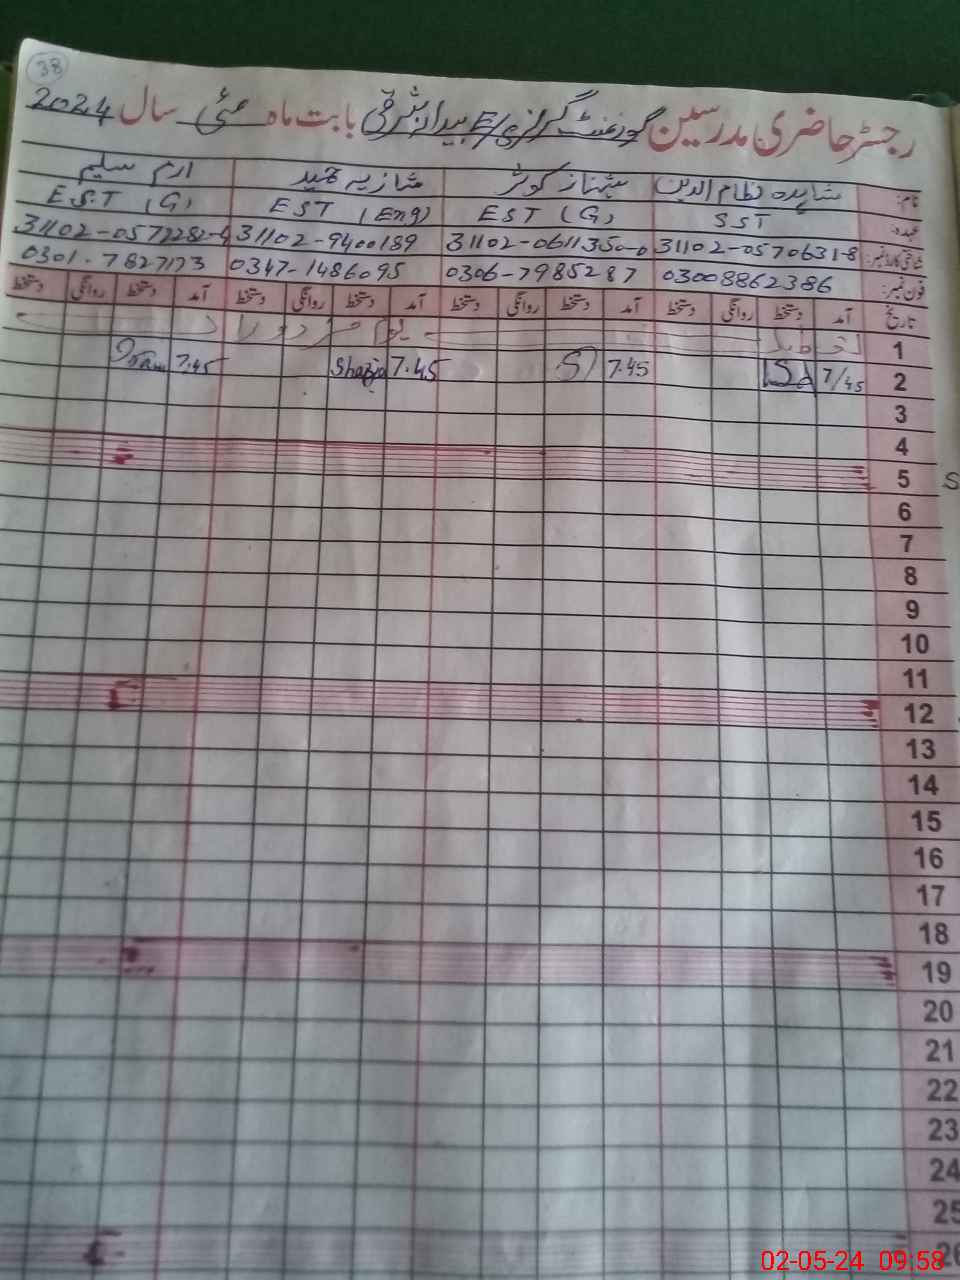 38
رجسٹر حاضری مدرسین گورنمنٹ گرلز E/S بیدار شرقی بابت ماہ مئی سال 2024
نام: شاہدہ نظام الدین شہناز کوثر شازیہ حمید ارم سلیم
عہدہ: SST EST (G) EST (Eng) EST (G)
شناختی کارڈ نمبر: 31102-0570631-8 31102-0611350-0 31102-9400189 31102-0572282-4
فون نمبر: 03008862386 0306-7985287 0347-1486095 0301-7827173
تاریخ آمد دستخط روانگی دستخط آمد دستخط روانگی دستخط آمد دستخط روانگی دستخط آمد دستخط روانگی دستخط
1 تعطیل یوم مزدوراں
2 7/45 7.45 7.45 Shazia 7.45 Iram
3
4
5
6
7
8
9
10
11
12
13
14
15
16
17
18
19
20
21
22
23
24
25
26
02-05-24 09:58